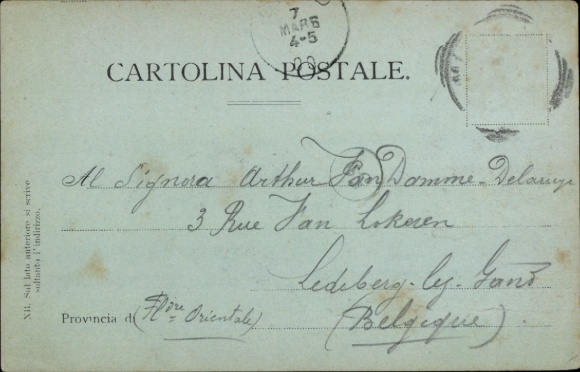 7
MAR 6
4-5
00
CARTOLINA POSTALE.
Al Signora Arthur Van Damme-Delaruye
3 Rue Van Lokeren
Ledeberg-lez-Gand
Provincia di (Fl^dre Orientale)
(Belgique)
NB. Sul lato anteriore si scrive
soltanto l'indirizzo.